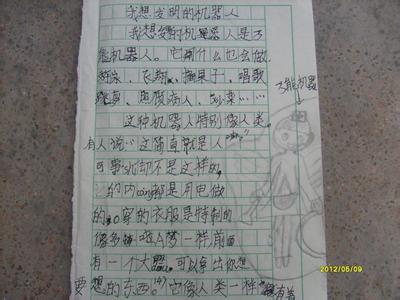 我想发明的机器人
我想发明的机器人是万
能机器人。它什么也会做
衣服、摘果子、唱歌
跳舞、照顾病人、炒菜……
这种机器人特别像人类。
有人说：“这简直就是人
可事实却不是这样的，
的内 都是用电做
的。穿的衣服是特制的
像多啦A梦一样，前面
有一个大 ，可以拿出你想
要想的东西。它像人类一样
万能机器
2012/05/09